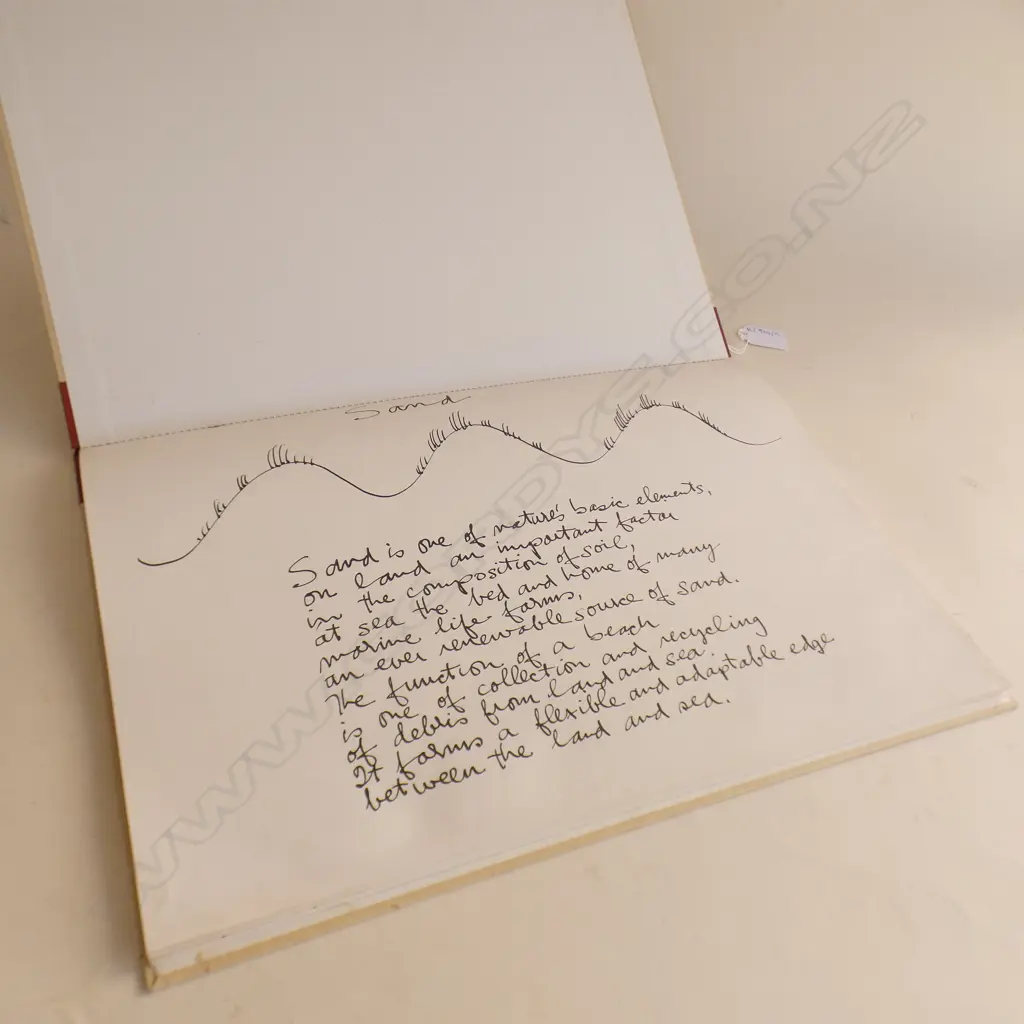 Sand
Sand is one of nature's basic elements,
on land an important factor
in the composition of soil,
at sea the bed and home of many
marine life forms,
an ever renewable source of sand.
The function of a beach
is one of collection and recycling
of debris from land and sea.
It forms a flexible and adaptable edge
between the land and sea.
WWW.CORDYS.CO.NZ